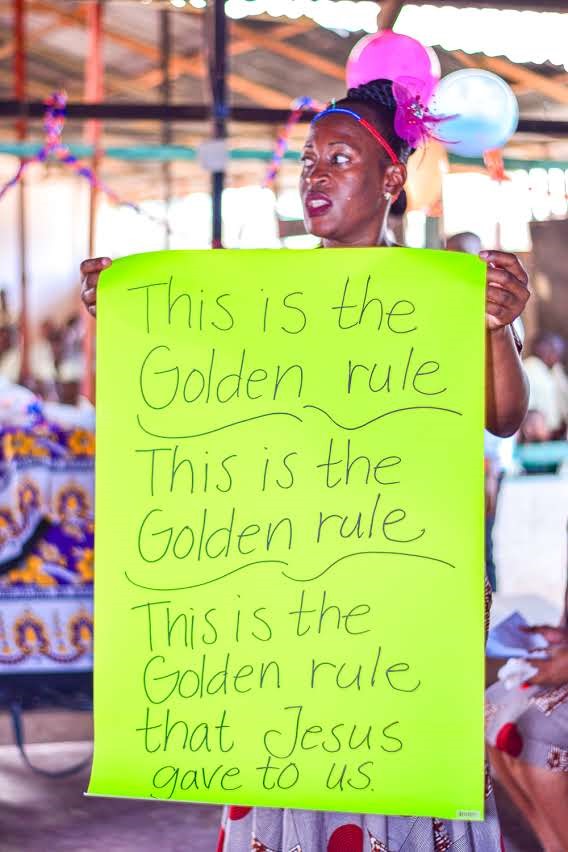 This is the
Golden rule
This is the
Golden rule
This is the
Golden rule
that Jesus
gave to us.